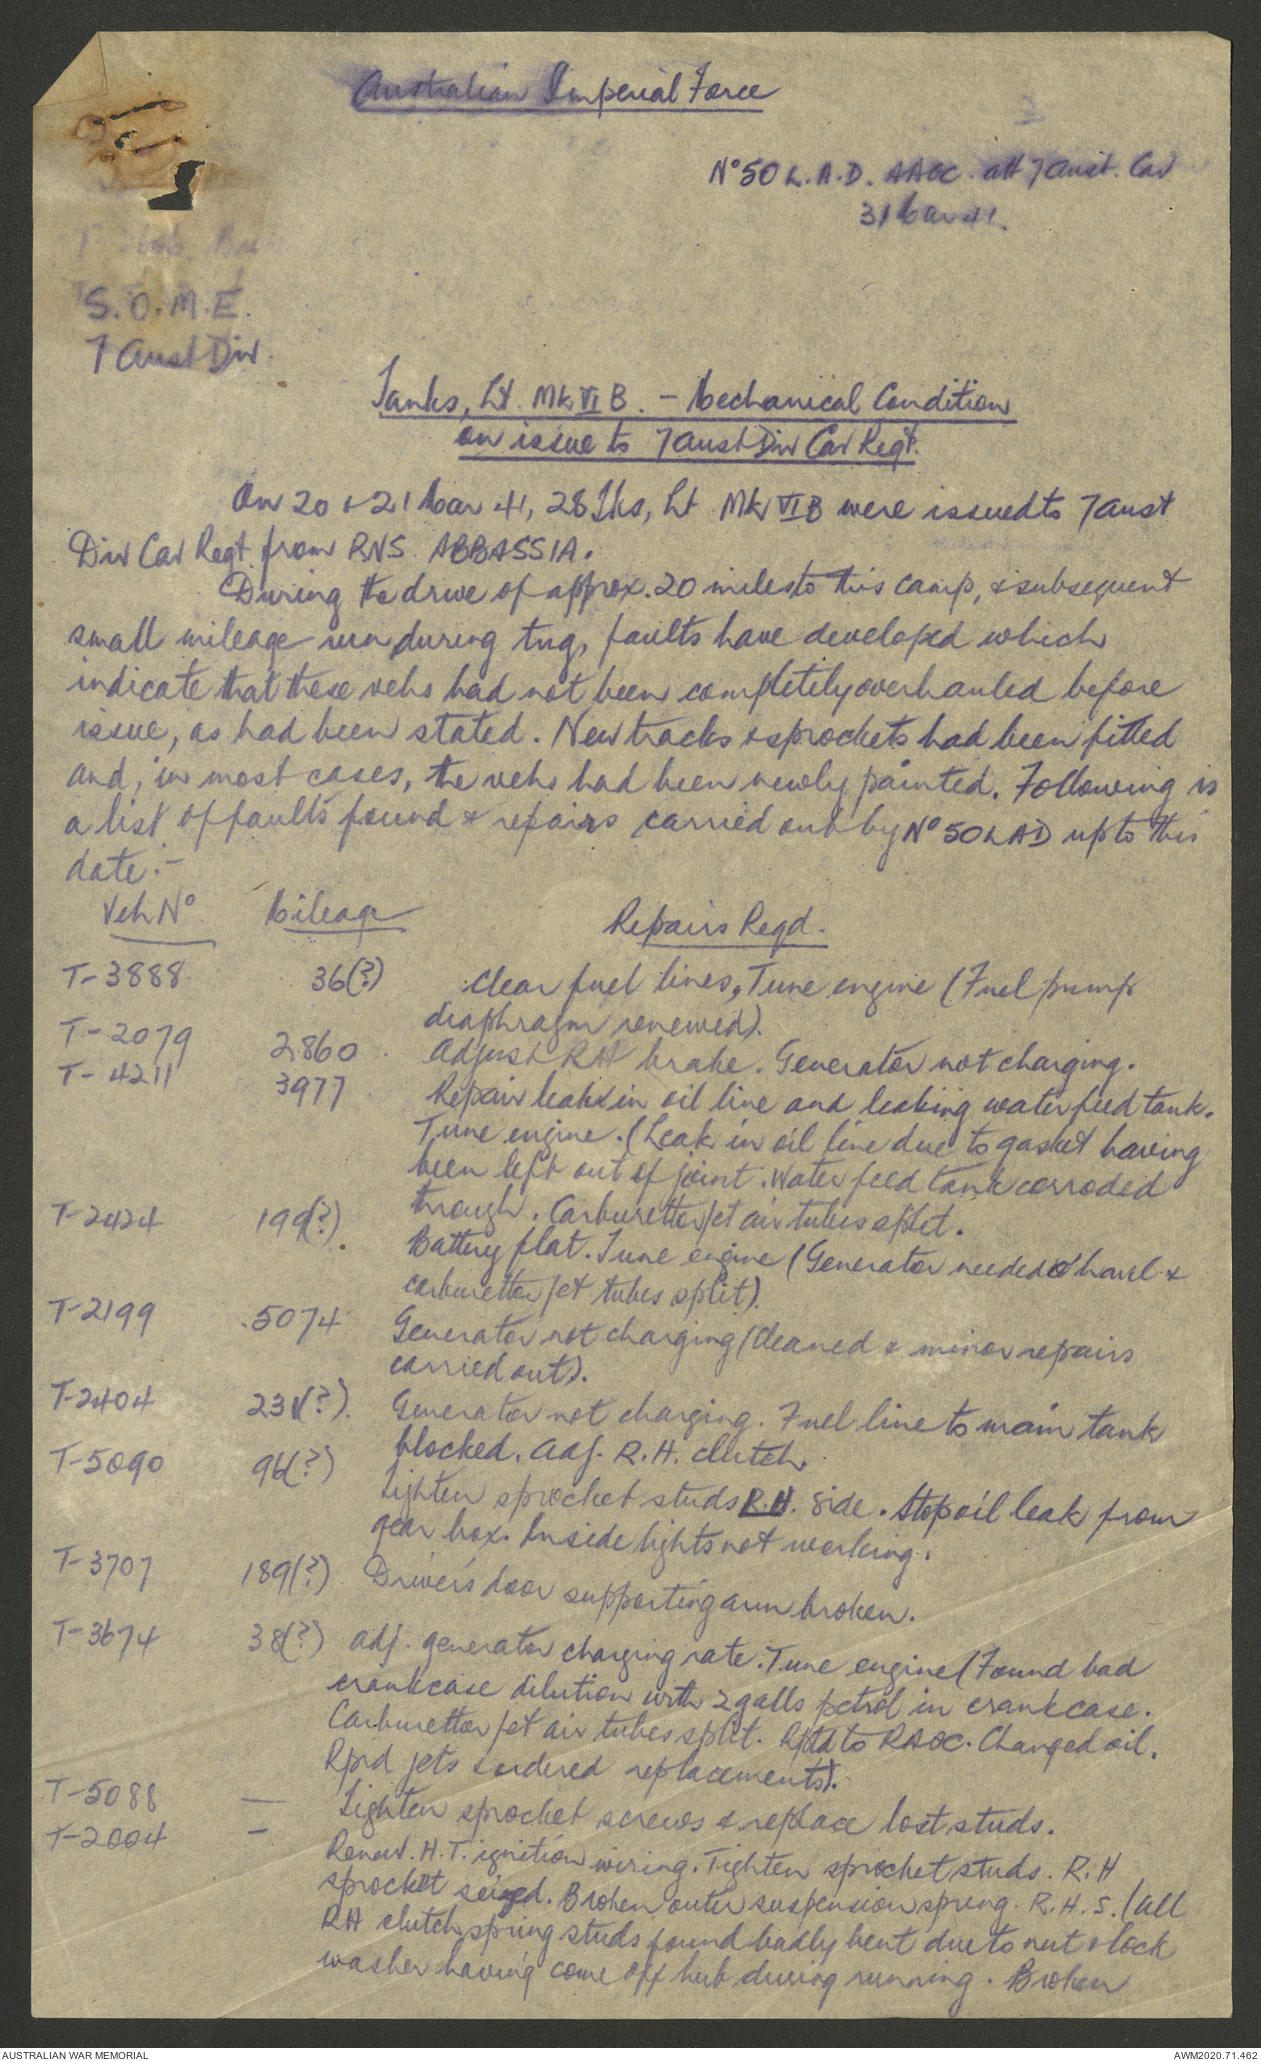 Australian Imperial Force
No 50 L.A.D. AAOC. att 7 Aust. Cav
31 Mar 41.
S.O.M.E.
7 Aust Div.
Tanks, Lt. Mk VI B. - Mechanical Condition
on issue to 7 Aust Div Cav Regt.
On 20 & 21 Mar 41, 28 Tks, Lt Mk VI B were issued to 7 Aust
Div Cav Regt from RVS. ABBASSIA.
During the drive of approx. 20 miles to this camp, & subsequent
small mileage run during tng, faults have developed which
indicate that these vehs had not been completely overhauled before
issue, as had been stated. New tracks & sprockets had been fitted
and, in most cases, the vehs had been newly painted. Following is
a list of faults found & repairs carried out by No 50 LAD up to this
date:-
Veh No Mileage Repairs Reqd.
T-3888 36(?) Clear fuel lines, Tune engine (Fuel pump
diaphragm renewed).
T-2079 2860 Adjust RH brake. Generator not charging.
T-4211 3977 Repair leak in oil line and leaking water feed tank.
Tune engine. (Leak in oil line due to gasket having
been left out of joint. Water feed tank corroded
through. Carburettor jet air tubes split.
T-2424 199(?). Battery flat. Tune engine (Generator needed o'haul &
carburettor jet tubes split).
T-2199 5074 Generator not charging (Cleaned & minor repairs
carried out).
T-2404 231(?). Generator not charging. Fuel line to main tank
blocked. Adj. R.H. clutch.
T-5090 96(?) Tighten sprocket studs R.H. side. Stop oil leak from
gear box. Inside lights not working.
T-3707 189(?) Driver's door supporting arm broken.
T-3674 38(?) Adj. generator charging rate. Tune engine (Found bad
crankcase dilution with 2 galls petrol in crankcase.
Carburettor jet air tubes split. Rptd to RAOC. Changed oil.
Rprd jets & ordered replacements).
T-5088 — Tighten sprocket screws & replace lost studs.
T-2004 — Renew. H.T. ignition wiring. Tighten sprocket studs. R.H
sprocket seized. Broken outer suspension spring. R.H.S. (All
RH clutch spring studs found badly bent due to nut & lock
washer having come off hub during running. Broken
AUSTRALIAN WAR MEMORIAL AWM2020.71.462